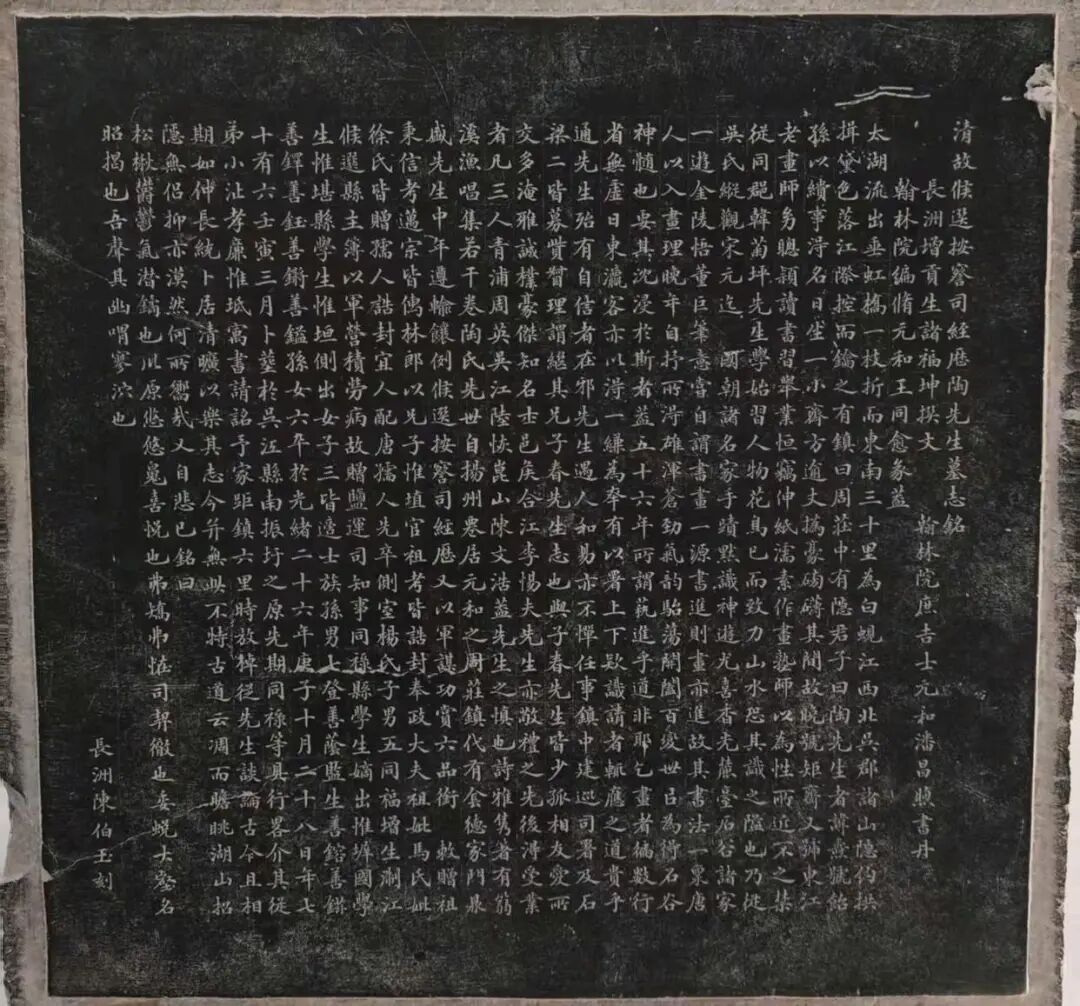 清故候選按察司經歷陶先生墓志銘
長洲增貢生諸福坤撰文 翰林院庶吉士元和潘昌煦書丹
翰林院編脩元和王同愈篆蓋
太湖流出垂虹橋一枝折而東南三十里為白蜆江西北吳郡諸山隱約拱
揖黛色落江際控而鑰之有鎮曰周莊中有隱君子曰陶先生者諱燾號詒
孫以繢事淂名日坐一小齋方逾丈摛豪磅礴其間故晚號矩齋又號東江
老畫師多聰頴讀書習舉業恒竊伸紙濡素作畫塾師以為性所近不之禁
從同郡韓蘭坪先生學始習人物花鳥已而致力山水恐其識之隘也乃從
吳氏縱觀宋元迄 國朝諸名家手蹟默識神遊尤喜香光麓臺石谷諸家
一遊金陵悟董巨筆意嘗自謂書畫一源書進則畫亦進故其書法一稟唐
人以入畫理晚年自抒所淂雄渾蒼勁氣韵駘蕩開闔百變世㠯為淂石谷
神髓也要其沈浸於斯者蓋五十六年所謂蓺進乎道非耶乞畫者徧數行
省無虛日東瀛客亦以淂一縑為幸有以署上下款識請者輒應之道貴乎
通先生殆有自信者在邪先生遇人和易亦不憚任事鎮中建巡司署及石
梁二皆募貲贊理謂繼其兄子春先生志也與子春先生皆少孤相友愛所
交多淹雅誠樸豪傑知名士邑矦合江李惕夫先生亦敬禮之先後淂受業
者凡三人青浦周英吳江陸恢崑山陳文浩蓋先生之慎也詩雅雋著有翦
溪漁唱集若干卷陶氏先世自揚州㽛居元和之周莊鎮代有套德家門鼎
盛先生中年遵輸饟例候選按察司經歷又以軍謀功賞六品銜 敕贈祖
秉信考邁宗皆儁林郎以兄子惟埴官祖考皆誥封奉政大夫祖妣馬氏妣
徐氏皆贈孺人誥封宜人配唐孺人先卒側室楊氏子男五同福增生淛江
候選縣主簿以軍營積勞病故贈鹽運司知事同祿縣學生嫡出惟墀國學
生惟堪縣學生惟垣側出女子三皆適士族孫男七登善蔭監生善鎔善鎝
善鐸善鈺善銜善鎰孫女六卒於光緒二十六年庚子十月二十八日年七
十有六壬寅三月卜塟於吳江縣南振圩之原先期同祿等具行畧介其從
弟小沚孝廉惟坻寓書請銘予家距鎮六里時放棹從先生談論古今且相
期如仲長統卜居清曠以樂其志今并無此不特古道云凋而瞻眺湖山招
隱無侶抑亦漠然何所嚮㢤又自悲已銘曰
松楸欝鬱氣潜鐍也川原悠悠䰟喜悅也弗矯弗恠司契徹也委蛻大壑名
昭揭也吾聲其幽喟寥泬也
長洲陳伯玉刻